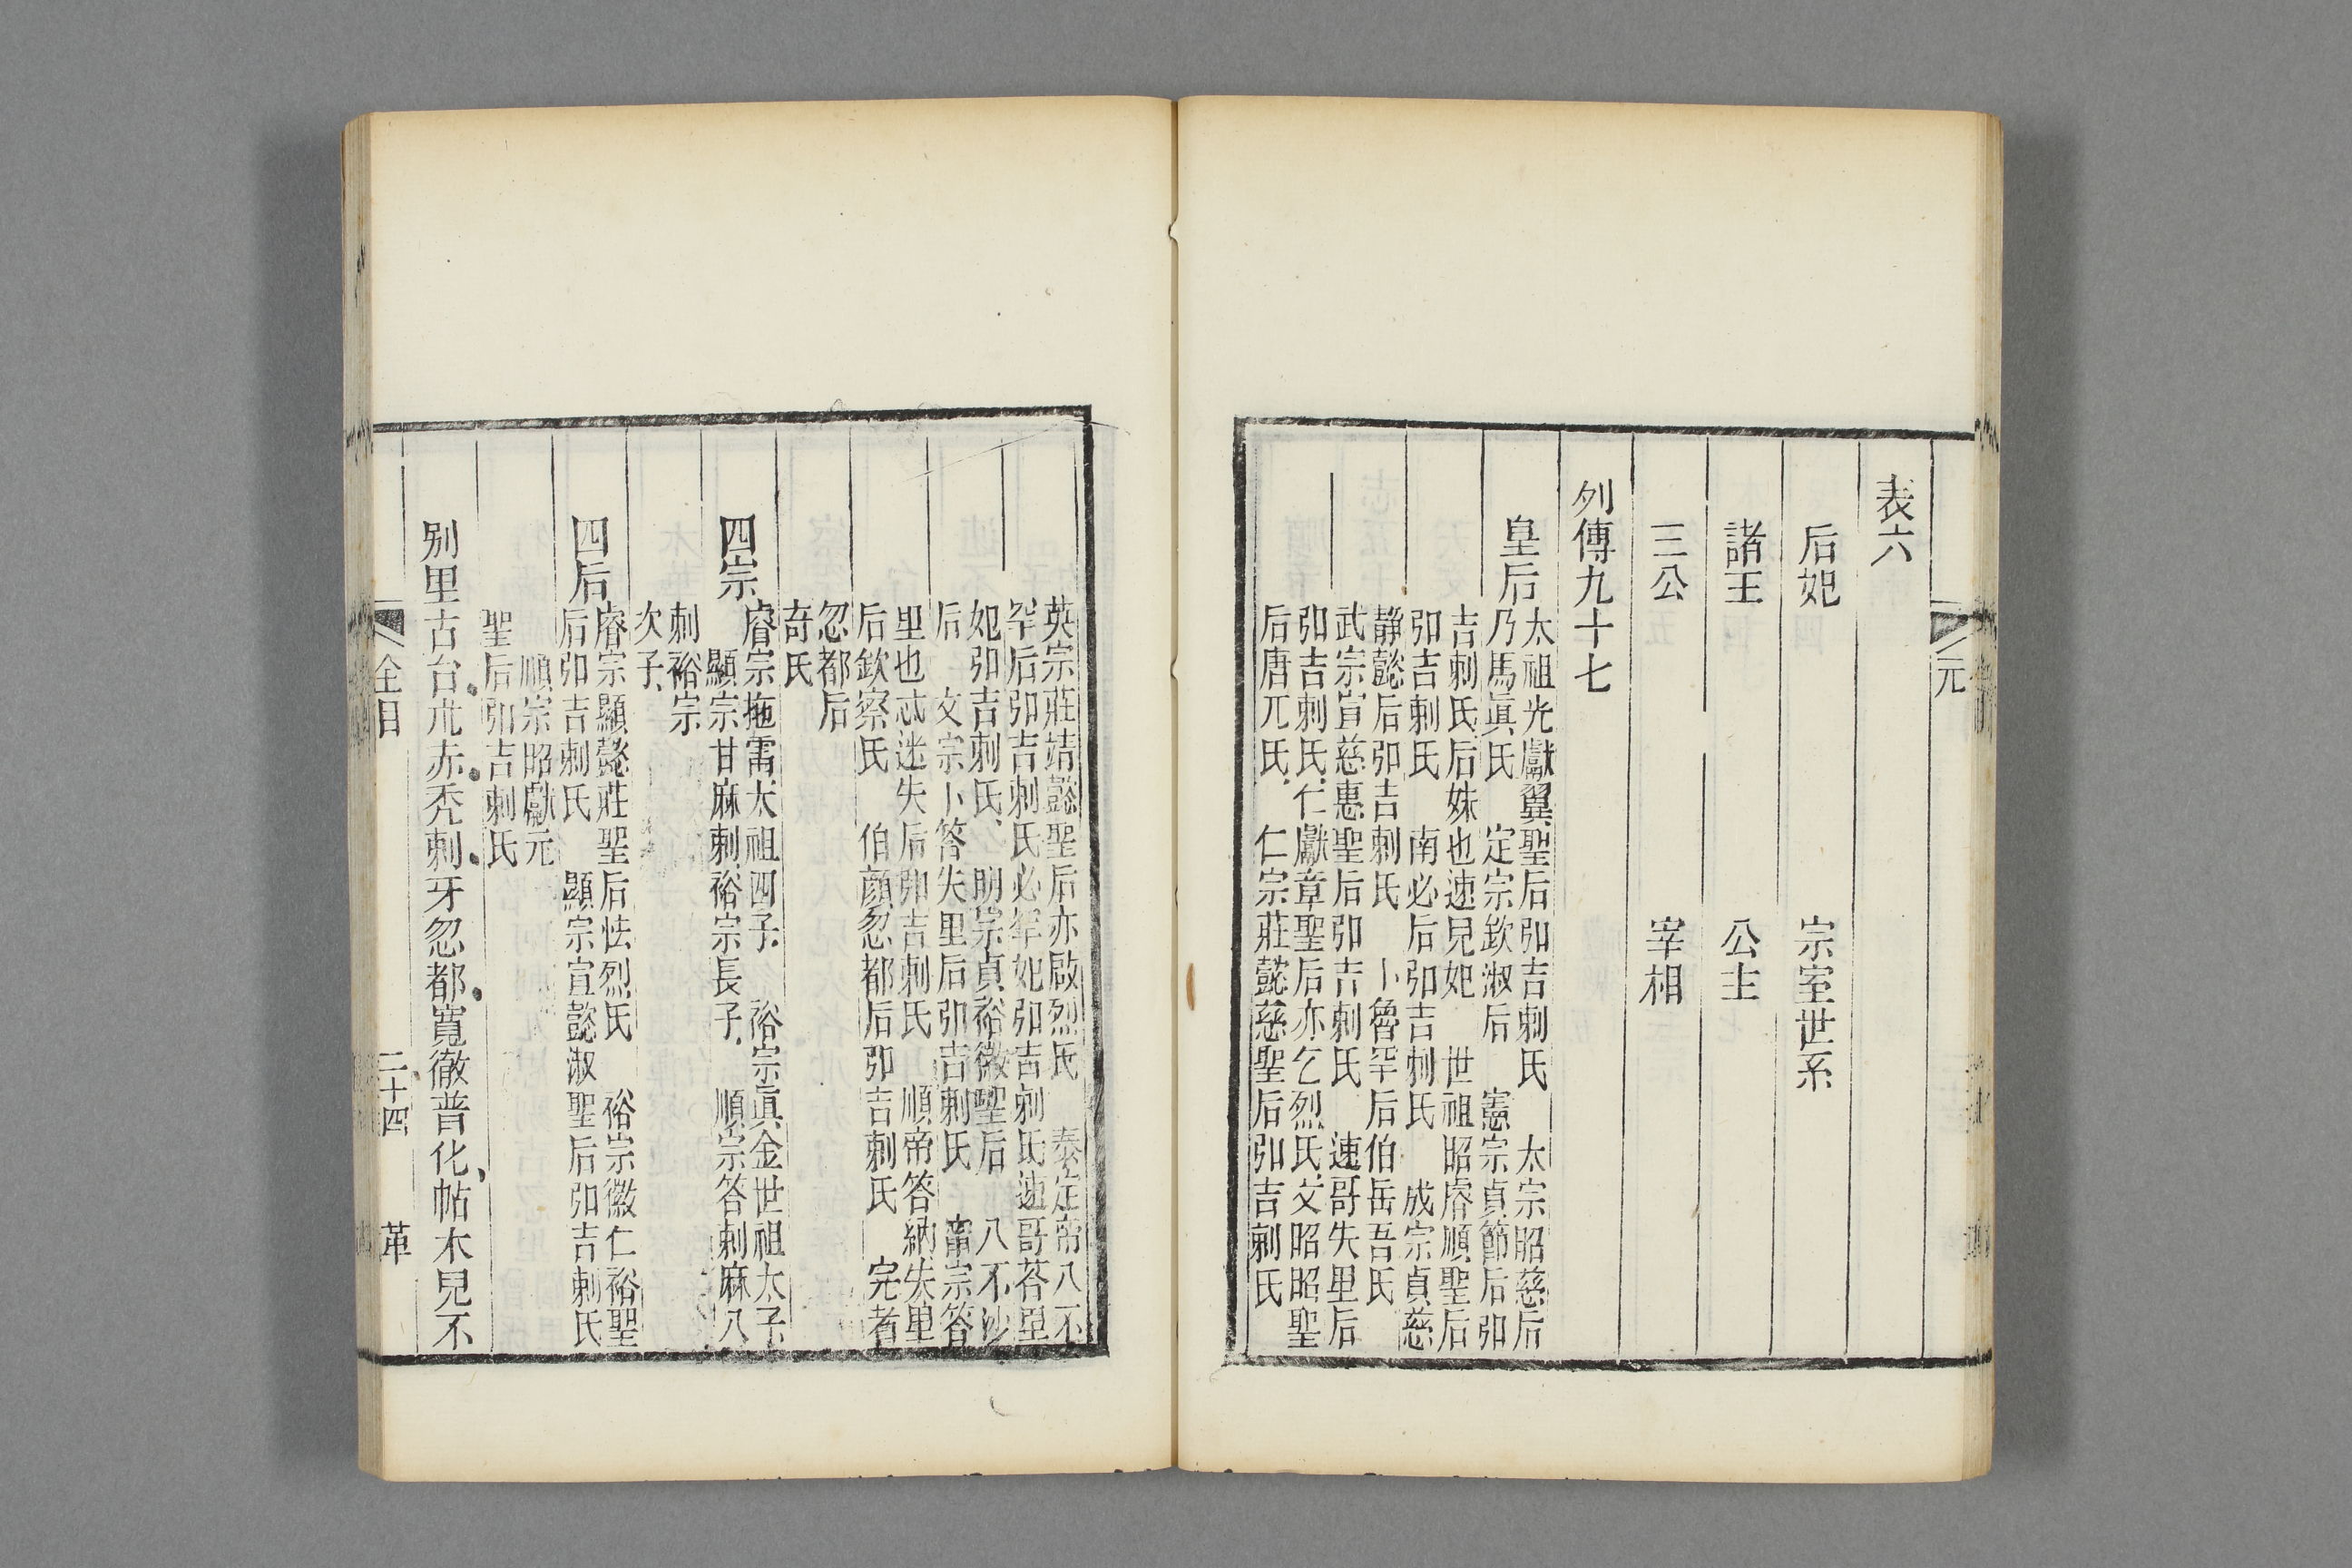 元
表六
后妃 宗室世系
諸王 公主
三公 宰相
列傳九十七
皇后
太祖光獻翼聖后弘吉剌氏 太宗昭慈后
乃馬眞氏 定宗欽淑后 憲宗貞節后弘
吉剌氏后妹也速兒妃 世祖昭睿順聖后
弘吉剌氏 南必后弘吉剌氏 成宗貞慈
靜懿后弘吉剌氏 卜魯罕后伯岳吾氏
武宗宣慈惠聖后弘吉剌氏 速哥失里后
弘吉剌氏仁獻章聖后亦乞烈氏文昭昭聖
后唐兀氏 仁宗莊懿慈聖后弘吉剌氏
英宗莊靖懿聖后亦啟烈氏 泰定帝八不
罕后弘吉剌氏必罕妃弘吉剌氏速哥荅里
妃弘吉剌氏 明宗貞裕徽聖后 八不沙
后 文宗卜答失里后弘吉剌氏 甯宗答
里也忒迷失后弘吉剌氏 順帝答納失里
后欽察氏 伯顏忽都后弘吉剌氏 完者
忽都后
奇氏
四宗
睿宗拖雷太祖四子 裕宗眞金世祖太子
顯宗甘麻剌裕宗長子 順宗答剌麻八
剌裕宗
次子
四后
睿宗顯懿莊聖后怯烈氏 裕宗徽仁裕聖
后弘吉剌氏 顯宗宣懿淑聖后弘吉剌氏
順宗昭獻元
聖后弘吉剌氏
別里古台朮赤禿剌牙忽都寬徹普化帖木兒不
全目 二十四 革